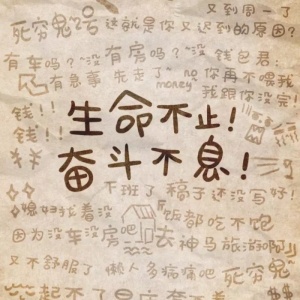 又到周一了
死穷鬼 这就是你又迟到的原因?
有车吗? 没有房吗? 没 钱包君:
有急事 先走了 no money 你再不喂我
我跟你没完!
钱!!
钱!!
生命不止!
奋斗不息!
下班了 稿子还没写好!
媳妇找着没 饭都吃不饱
因为没车没房吧 去神马旅游啊
又不舒服了 懒人多病痛吧 死穷鬼
起不了